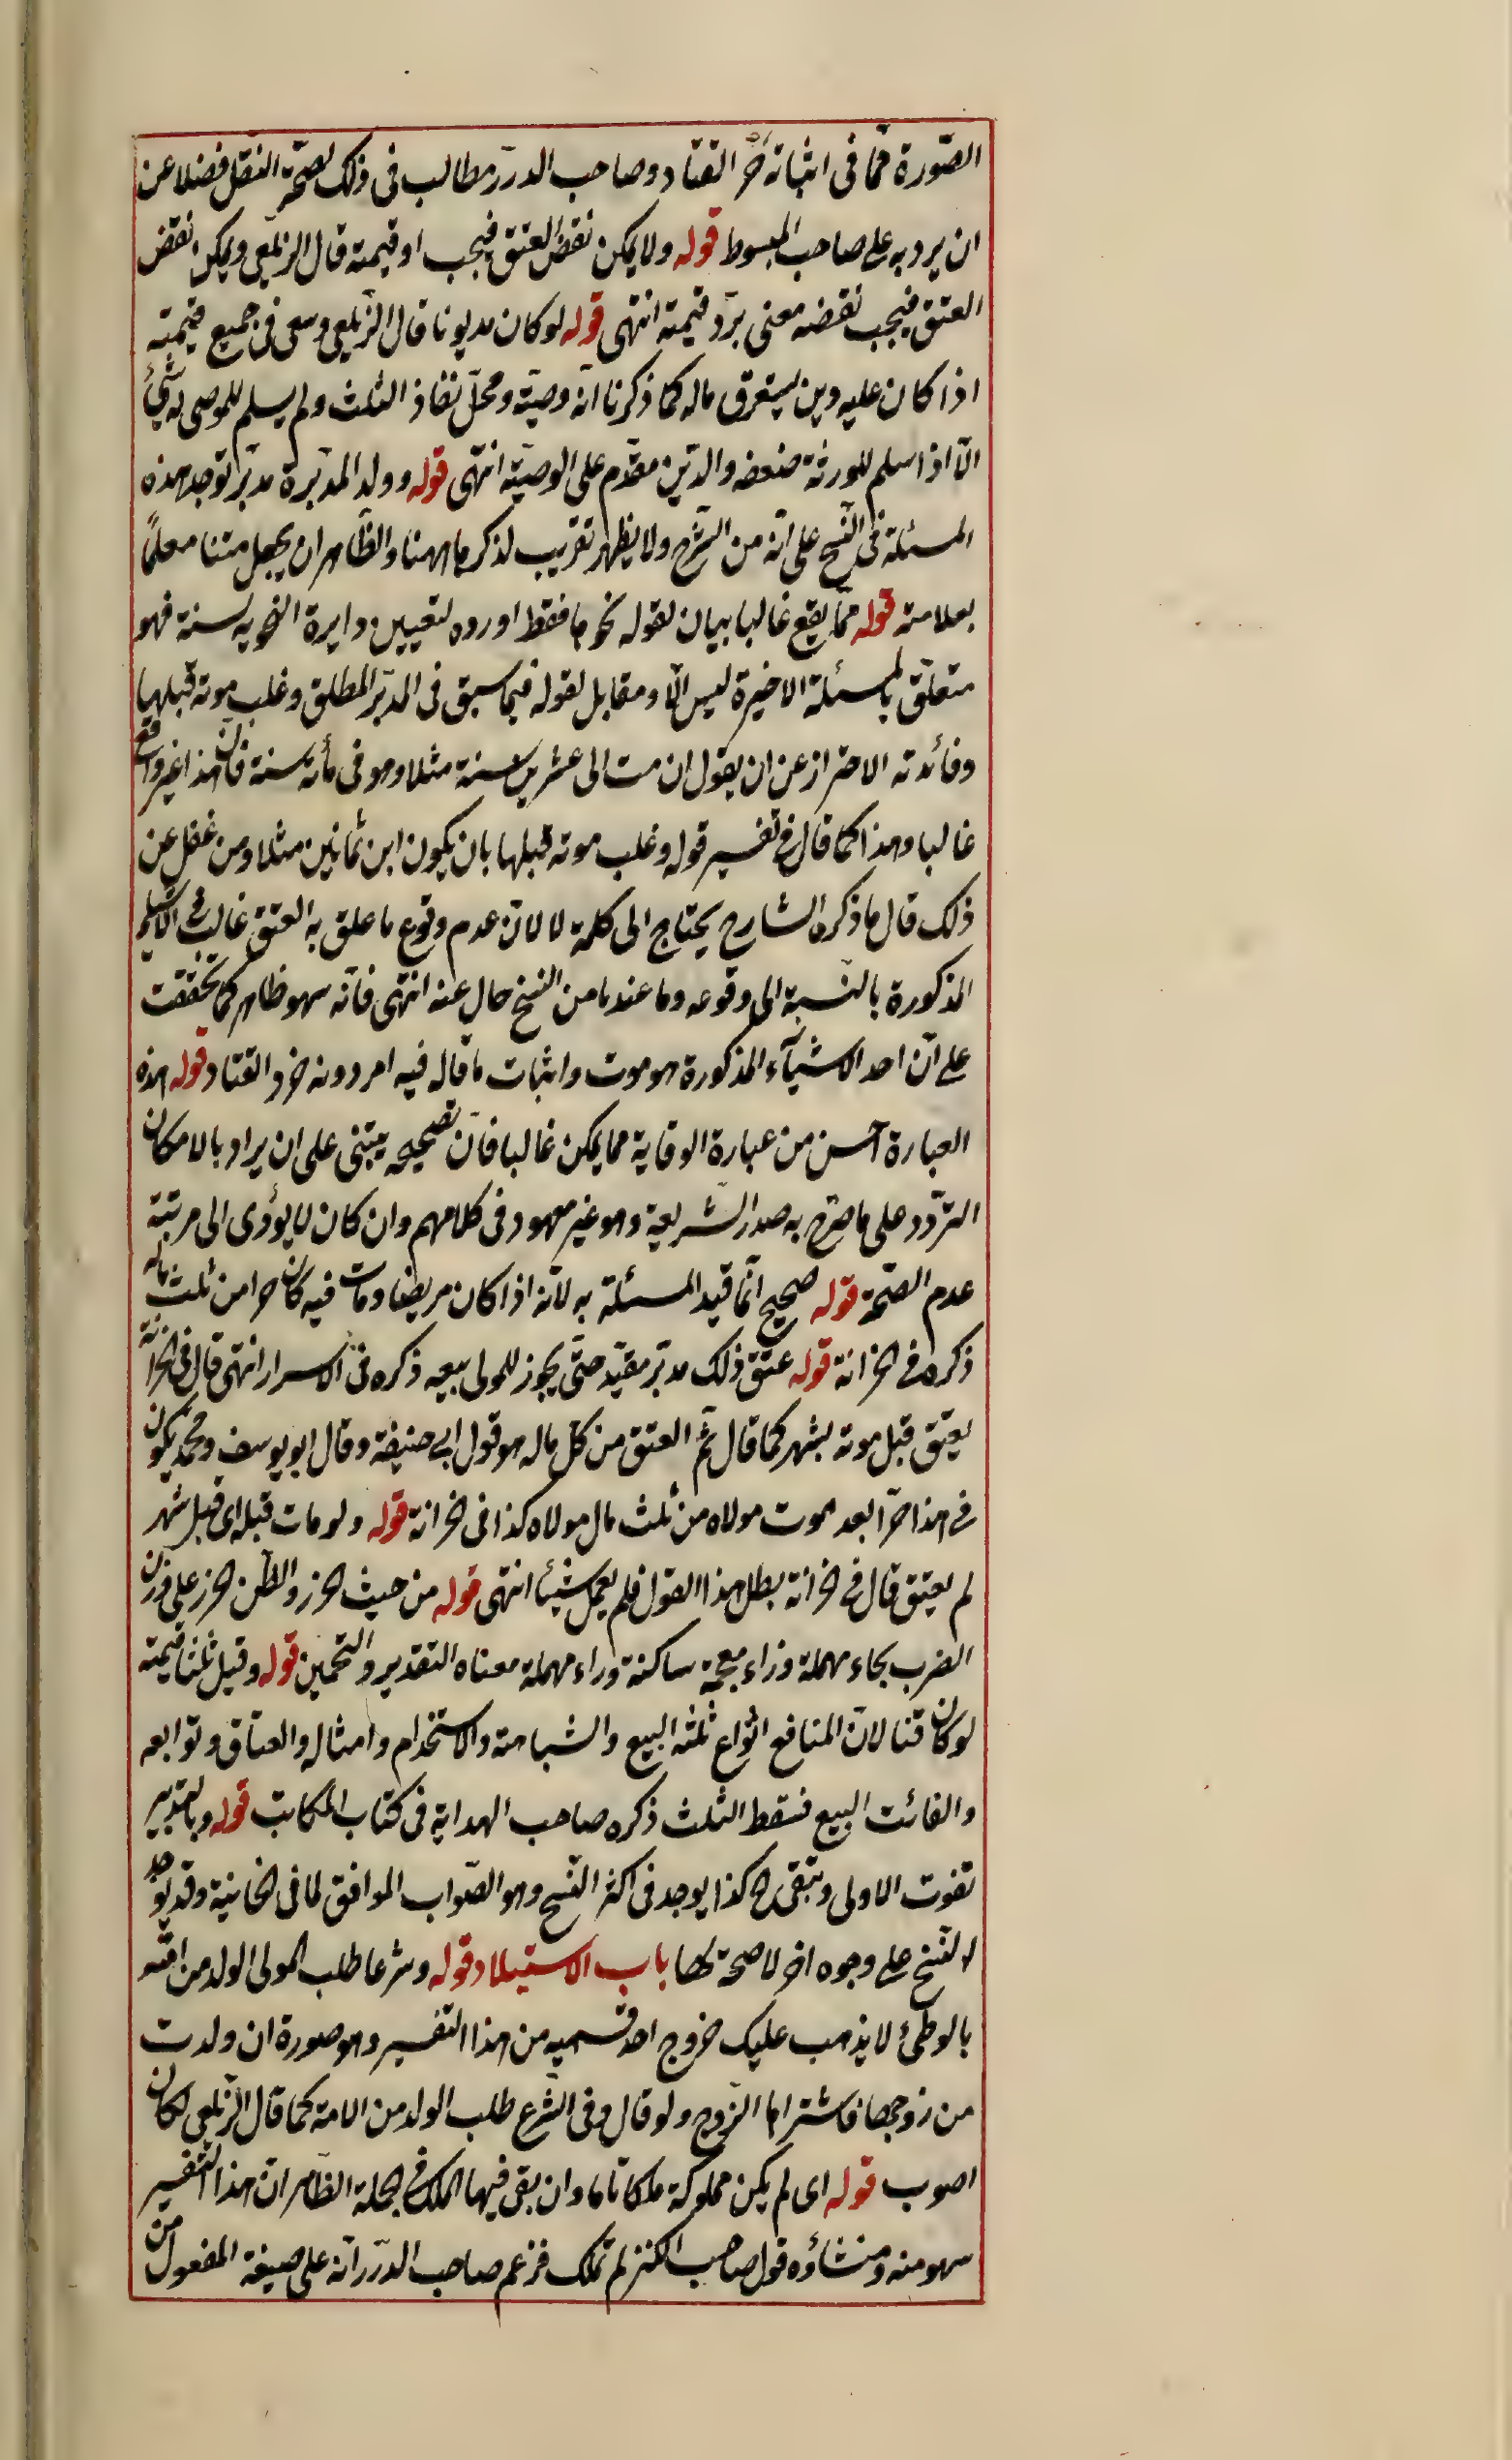 الصّورة ممّا فى اثباته خرّ القتاد وصاحب الدرر مطالب فى ذلك لصحّة النقل فضلا عن
ان يرد به على صاحب المبسوط قوله ولا يمكن نقض العتق فيجب او قيمته قال الزيلعى ويمكن نقض
العتق فيجب نقضه معنى بردّ قيمته انتهى قوله لو كان مديونا قال الزيلعى وسعى فى جميع قيمته
اذا كان عليه دين يستغرق ماله كما ذكرنا انّه وصيّة ومحلّ نفاذ الثلث ولم يسلم للموصى له شئ
الّا اذا سلم للورثة ضعفه والدّين مقدّم على الوصيّة انتهى قوله وولد المدبّرة مدبّر توجد هذه
المسئلة فى النّسخ على انّه من الشّرح ولا يظهر تقريب لذكرها ههنا والظّاهر ان يجعل متنا معلّما
بعلامته قوله ممّا يقع غالبا بيان لقوله نحوها فقط اورده لتعيين دايرة النحوية لسنة فهو
متعلّق بالمسئلة الاخيرة ليس الّا ومقابل لقوله فيما سبق فى المدبّر المطلق وغلب موته قبلها
وفائدته الاحتراز عن ان يقول ان مت الى عشرين سنة مثلا وهو فى مأة سنة فان هذا غير واقع
غالبا وهذا كما قال فى تفسير قوله وغلب موته قبلها بان يكون ابن ثمانين مثلا ومن غفل عن
ذلك قال ما ذكره الشارح يحتاج الى كلمة لا لانّ عدم وقوع ما علق به العتق غالب فى الامثلة
المذكورة بالنّسبة الى وقوعه وما عندنا من النسخ خال عنه انتهى فانّه سهو ظاهر كما تحققت
على انّ احد الاشيآء المذكورة هو موت واثبات ما قاله فيه امر دونه خرط القتاد قوله هذه
العبارة احسن من عبارة الوقاية مما يمكن غالبا فانّ تصحيحه يبتنى على ان يراد بالامكان
التردّد على ما صرّح به صدر الشّريعة وهو غير معهود فى كلامهم وان كان لا يؤدى الى مرتبة
عدم الصّحّة قوله صحيح انّما قيد المسئلة به لانّه اذا كان مريضا ومات فيه كان حرا من ثلث ماله
ذكره فى الخزانة قوله عتق ذلك مدبّر مقيّد حتّى يجوز للمولى بيعه ذكره فى الاسرار انتهى قال فى الخزانة
يعتق قبل موته بشهر كما قال ثمّ العتق من كلّ ماله هو قول ابى حنيفة وقال ابو يوسف ومحمد يكون
فى هذا حرّا بعد موت مولاه من ثلث مال مولاه كذا فى خزانة قوله ولو مات قبله اى قبل شهر
لم يعتق قال فى خزانة بطل هذا القول فلم يعمل شيئا انتهى قوله من حيث الحزر والظّن الحزر على وزن
الضرب بحاء مهملة وزاء معجمة ساكنة وراء مهملة معناه التقدير والتّخمين قوله وقيل ثلثا قيمته
لو كان قنا لانّ المنافع انواع ثلثه البيع والشباهته والاستخدام وامثاله والعتاق وتوابعه
والفائت البيع فسقط الثلث ذكره صاحب الهداية فى كتاب المكاتب قوله وبالتدبير
تفوت الاولى وتبقى ح كذا يوجد فى اكثر النّسخ وهو الصّواب الموافق لما فى الخانية وقد يوجد
النّسخ على وجوه اخر لا صحة لها باب الاستيلاد قوله وشرعا طلب المولى الولد من امته
بالوطئ لا يذهب عليك خروج احد قسميه من هذا التفسير وهو صورة ان ولدت
من زوجها فاشتراها الزّوج ولو قال وفى الشّرع طلب الولد من الامة كما قال الزّيلعى لكان
اصوب قوله اى لم يكن مملوكة ملكا تاما وان بقى فيها الملك فى الجملة الظّاهر انّ هذا التّفسير
سهو منه ومنشاؤه قول صاحب الكنز لم تملك فزعم صاحب الدّرر انّه على صيغة المفعول من